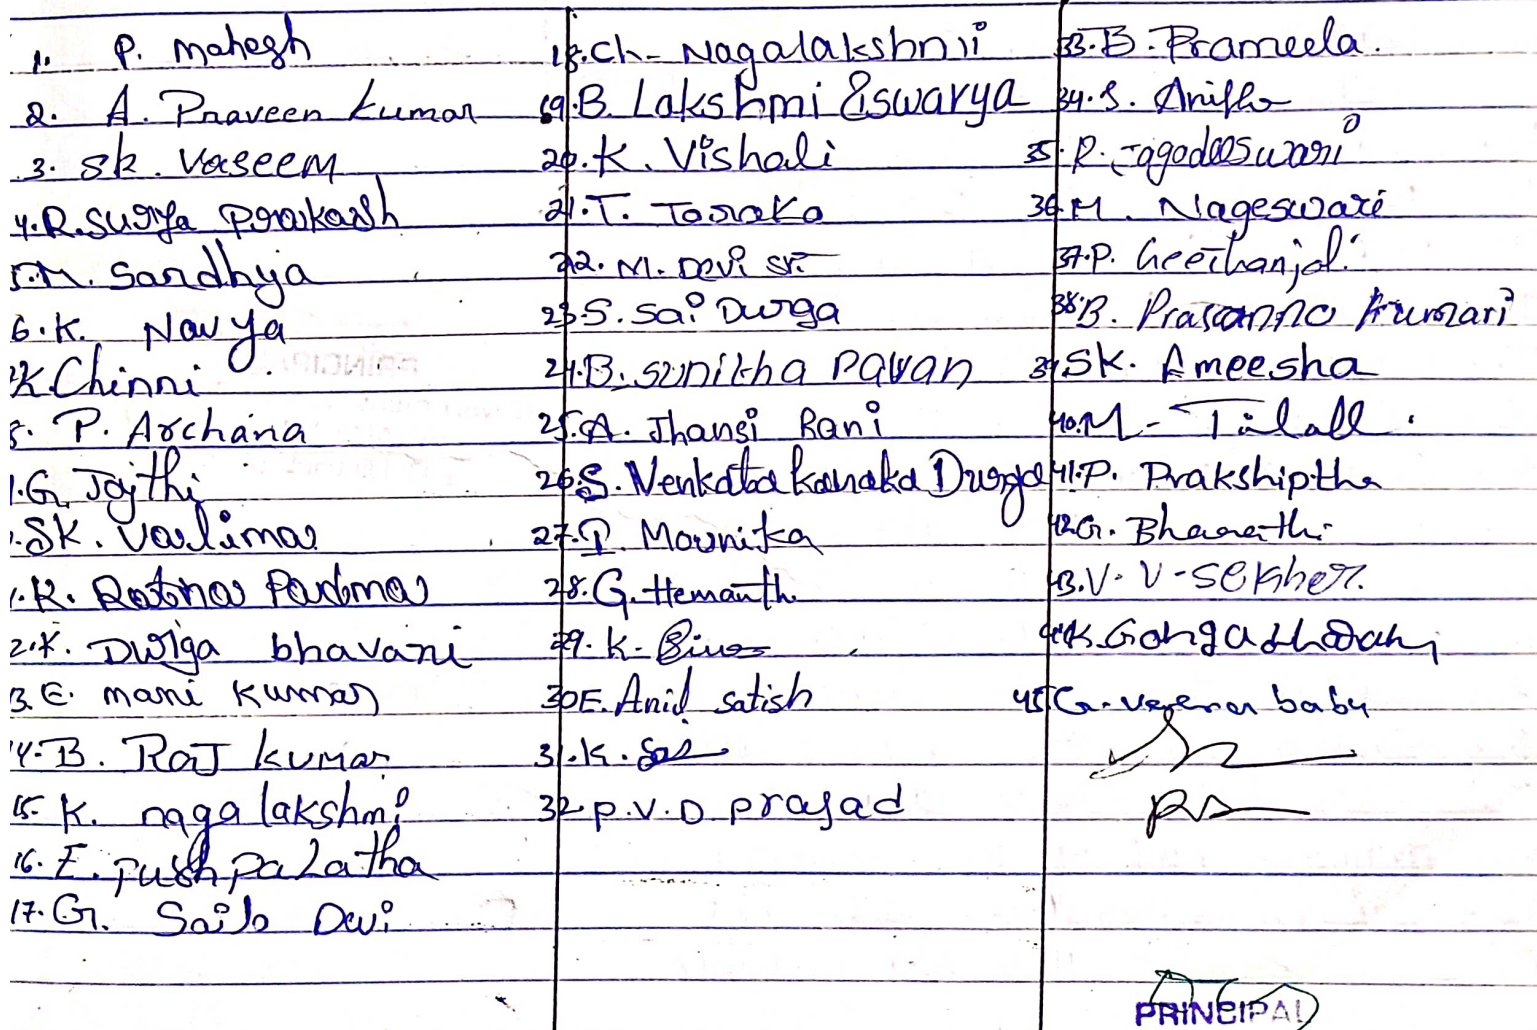 1. P. Mahesh
2. A. Praveen kumar
3. SK. Vaseem
4. R. Surya prakash
5. M. Sandhya
6. K. Navya
7. K. Chinni
8. P. Archana
9. G. Jojthi
10. SK. Vailima
11. K. Ratna Padma
12. K. Durga bhavani
13. E. mani kumar
14. B. Raj kumar
15. K. naga lakshmi
16. E. pushpa Latha
17. G. Devi
18. Ch- Nagalakshmi
19. B. Lakshmi Eswarya
20. K. Vishali
21. T. Taraka
22. M. Devi sri
23. S. Sai Durga
24. B. sunitha pavan
25. A. Jhansi Rani
26. S. Venkata kanaka Durga
27. P. Mounika
28. G. Hemanth
29. K.
30 E. Anil satish
31. K.
32 P.V.D prasad
33. B. Prameela.
34. S. Anitha
35. R. Jagadeeswari
36. M. Nageswari
37. P. Geethanjali
38. B. Prasanna kumari
39 SK. Ameesha
40. M-
41. P. Prakshiptha
42. G. Bharathi
43. V. V-Sekher.
44. K. Gangadharam
45 G. veera babu
PRINCIPAL